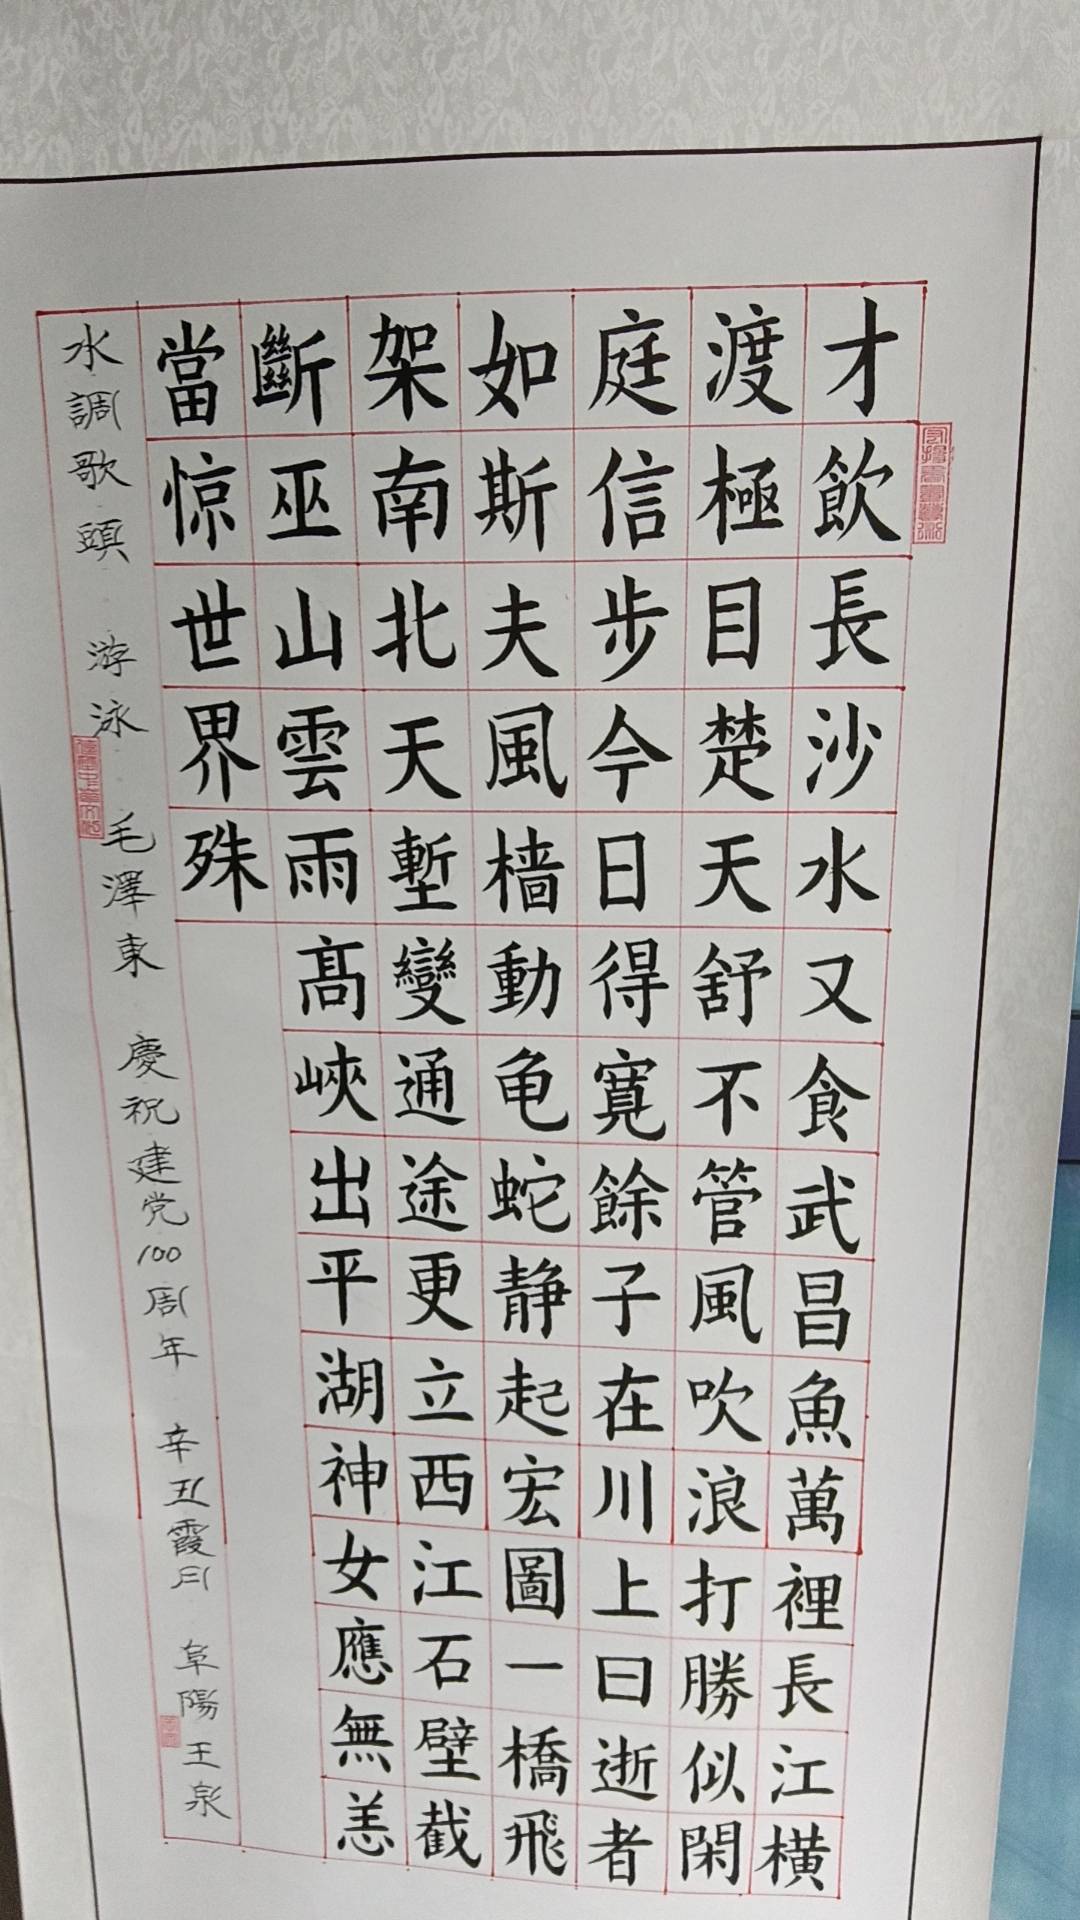 才飲長沙水又食武昌魚萬裡長江橫
渡極目楚天舒不管風吹浪打勝似閑
庭信步今日得寬餘子在川上曰逝者
如斯夫風檣動龟蛇静起宏圖一橋飛
架南北天塹變通途更立西江石壁截
斷巫山雲雨高峽出平湖神女應無恙
當惊世界殊
水調歌頭 游泳 毛澤東 慶祝建党100周年 辛丑霞月 阜陽王泉